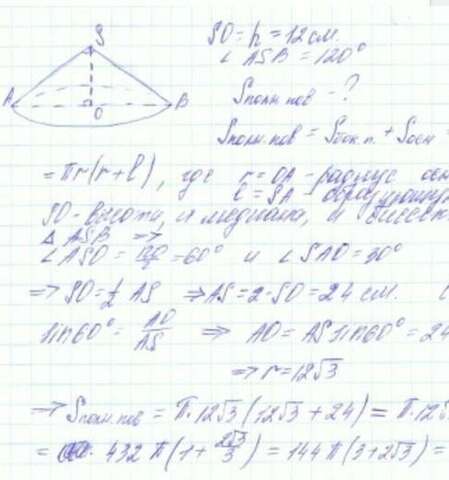 S
A
O
B
SO = h = 12 см.
∠ASB = 120°
Sполн.пов - ?
Sполн.пов = Sбок.п. + Sосн =
= πr(r+l), где r = OA - радиус осн
l = SA - образующая
SO - высота, и медиана, и биссект
△ ASB ⇒
∠ASO = = 60° и ∠SAO = 30°
⇒ SO = ½ AS ⇒ AS = 2·SO = 24 см.
sin60° = AO/AS ⇒ AO = AS sin60° = 24
⇒ r = 12√3
⇒ Sполн.пов = π·12√3(12√3 + 24) = π·12√
= 432 π(1 + 2√3/3) = 144π(3+2√3) =